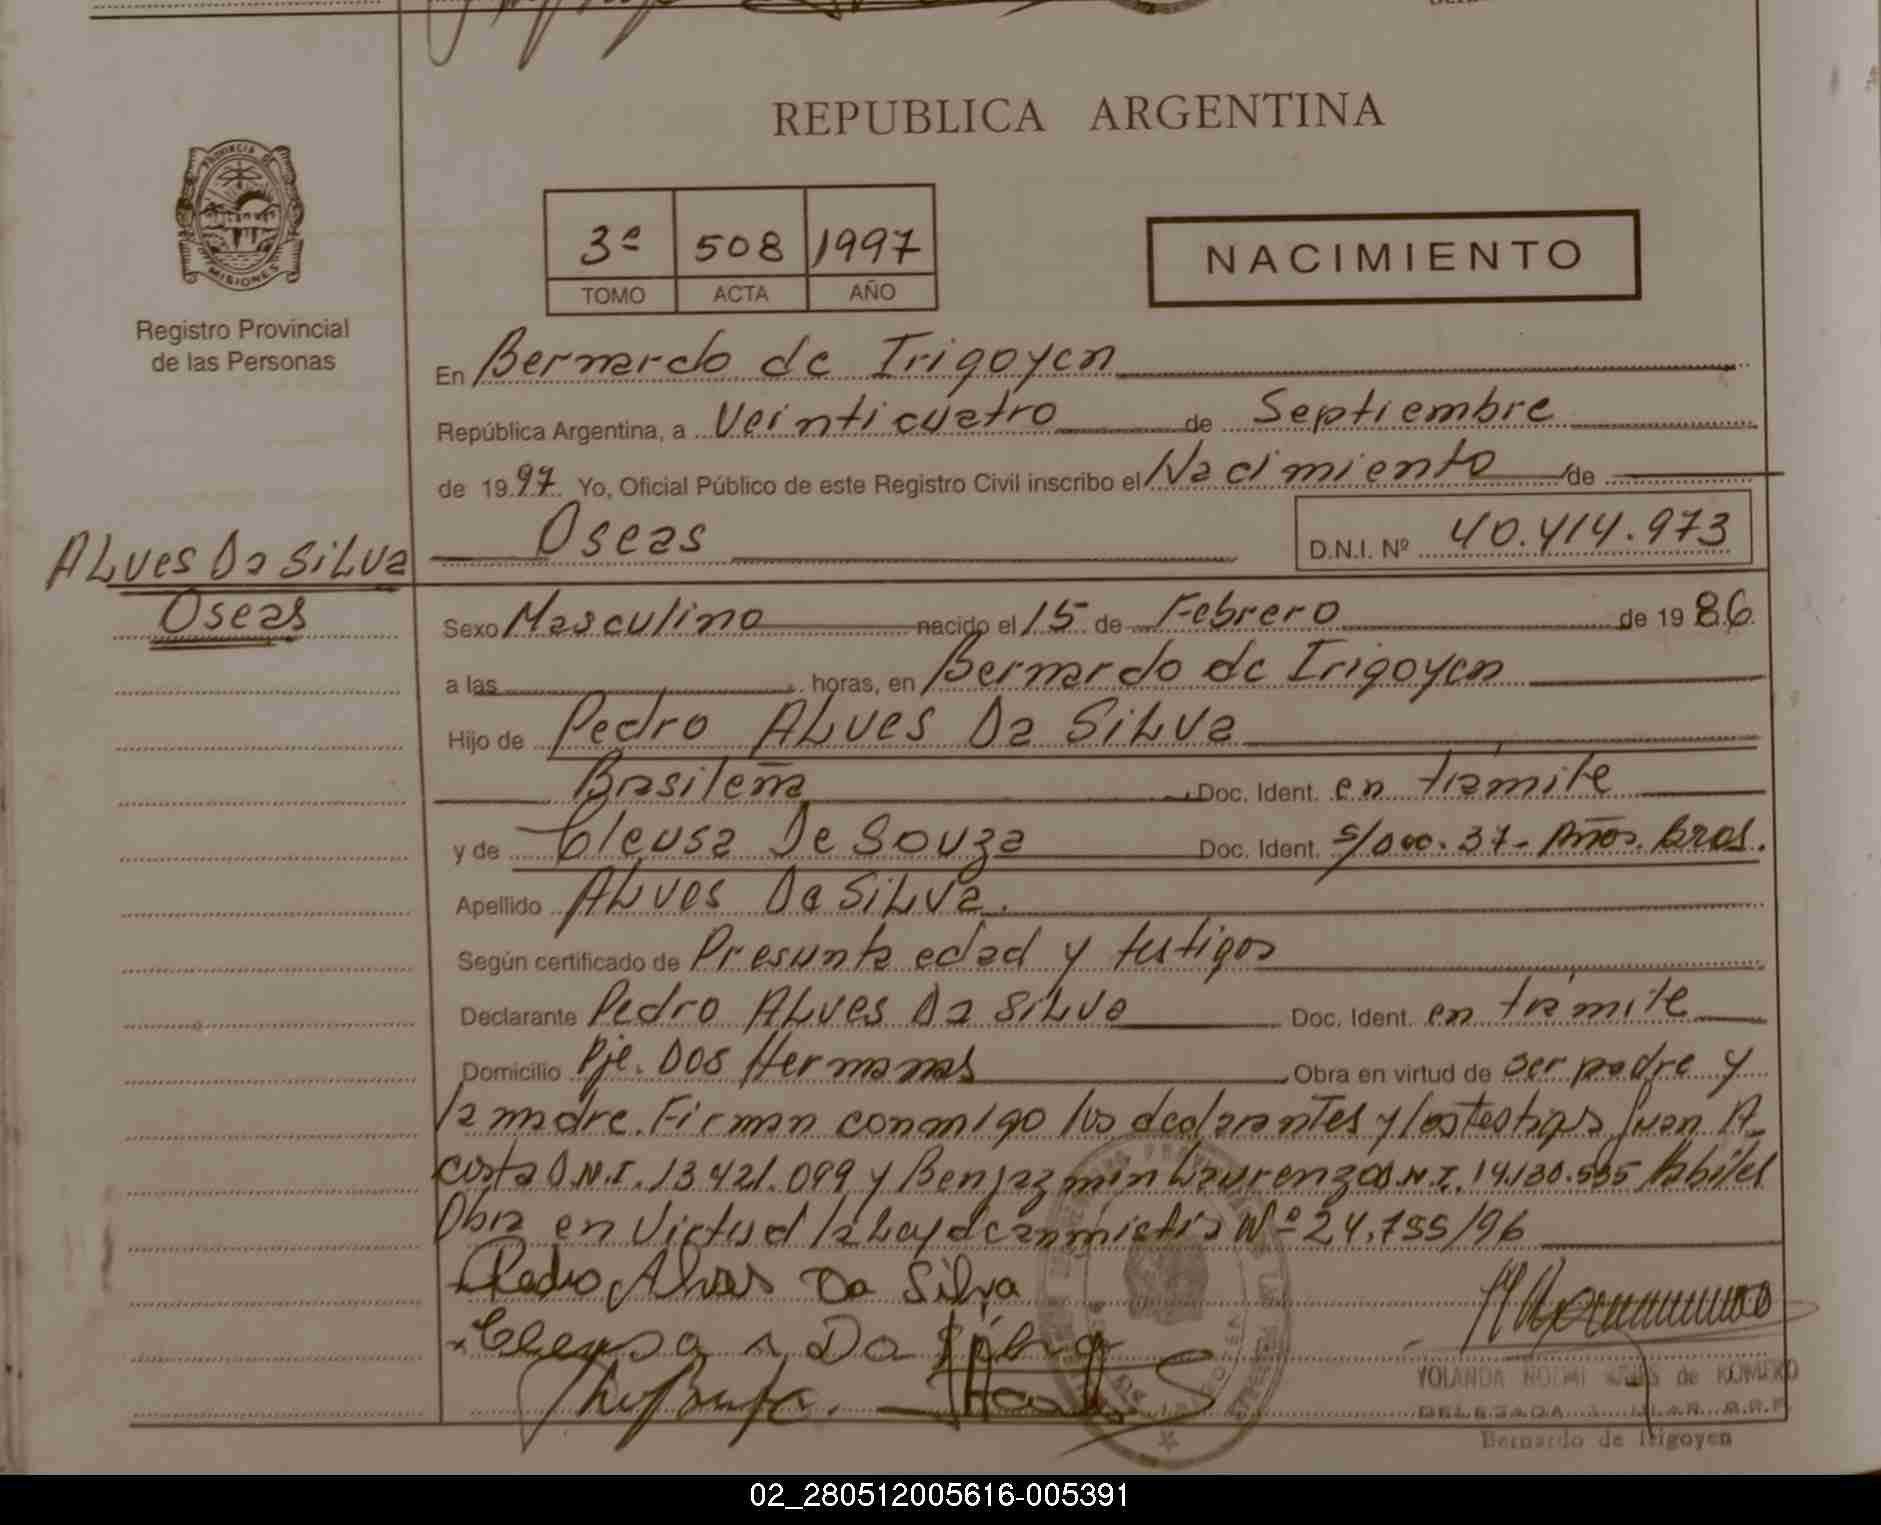 REPUBLICA ARGENTINA
PROVINCIA DE
MISIONES
Registro Provincial
de las Personas
3ª 508 1997
TOMO ACTA AÑO
NACIMIENTO
En Bernardo de Irigoyen
República Argentina, a Veinticuatro de Septiembre
de 1997 Yo, Oficial Público de este Registro Civil inscribo el Nacimiento de
Oseas D.N.I. Nº 40.414.973
ALVES Da SiLVa
Oseas
Sexo Masculino nacido el 15 de Febrero de 1986
a las horas, en Bernardo de Irigoyen
Hijo de Pedro ALVES Da SiLVa
Brasileña Doc. Ident. en trámite
y de Cleusa De Souza Doc. Ident. s/Doc. 37- Años. Bras.
Apellido ALVES Da SiLVa.
Según certificado de Presunta edad y testigos
Declarante Pedro ALVES Da SiLVa Doc. Ident. en trámite
Domicilio Pje. Dos Hermanas Obra en virtud de ser padre y
la madre. Firman conmigo los declarantes y los testigos Juan A-
costa D.N.I. 13.421.099 y Benjazmin Laurenzo D.N.I. 14.130.535 habiles
Obra en Virtud la Ley de amnistia Nº 24.755/96
Pedro Alves Da Silva
Cleusa A Da Silva
YOLANDA NOEMI de ROMERO
DELEGADA TITULAR R.P.P.
Bernardo de Irigoyen
02_280512005616-005391